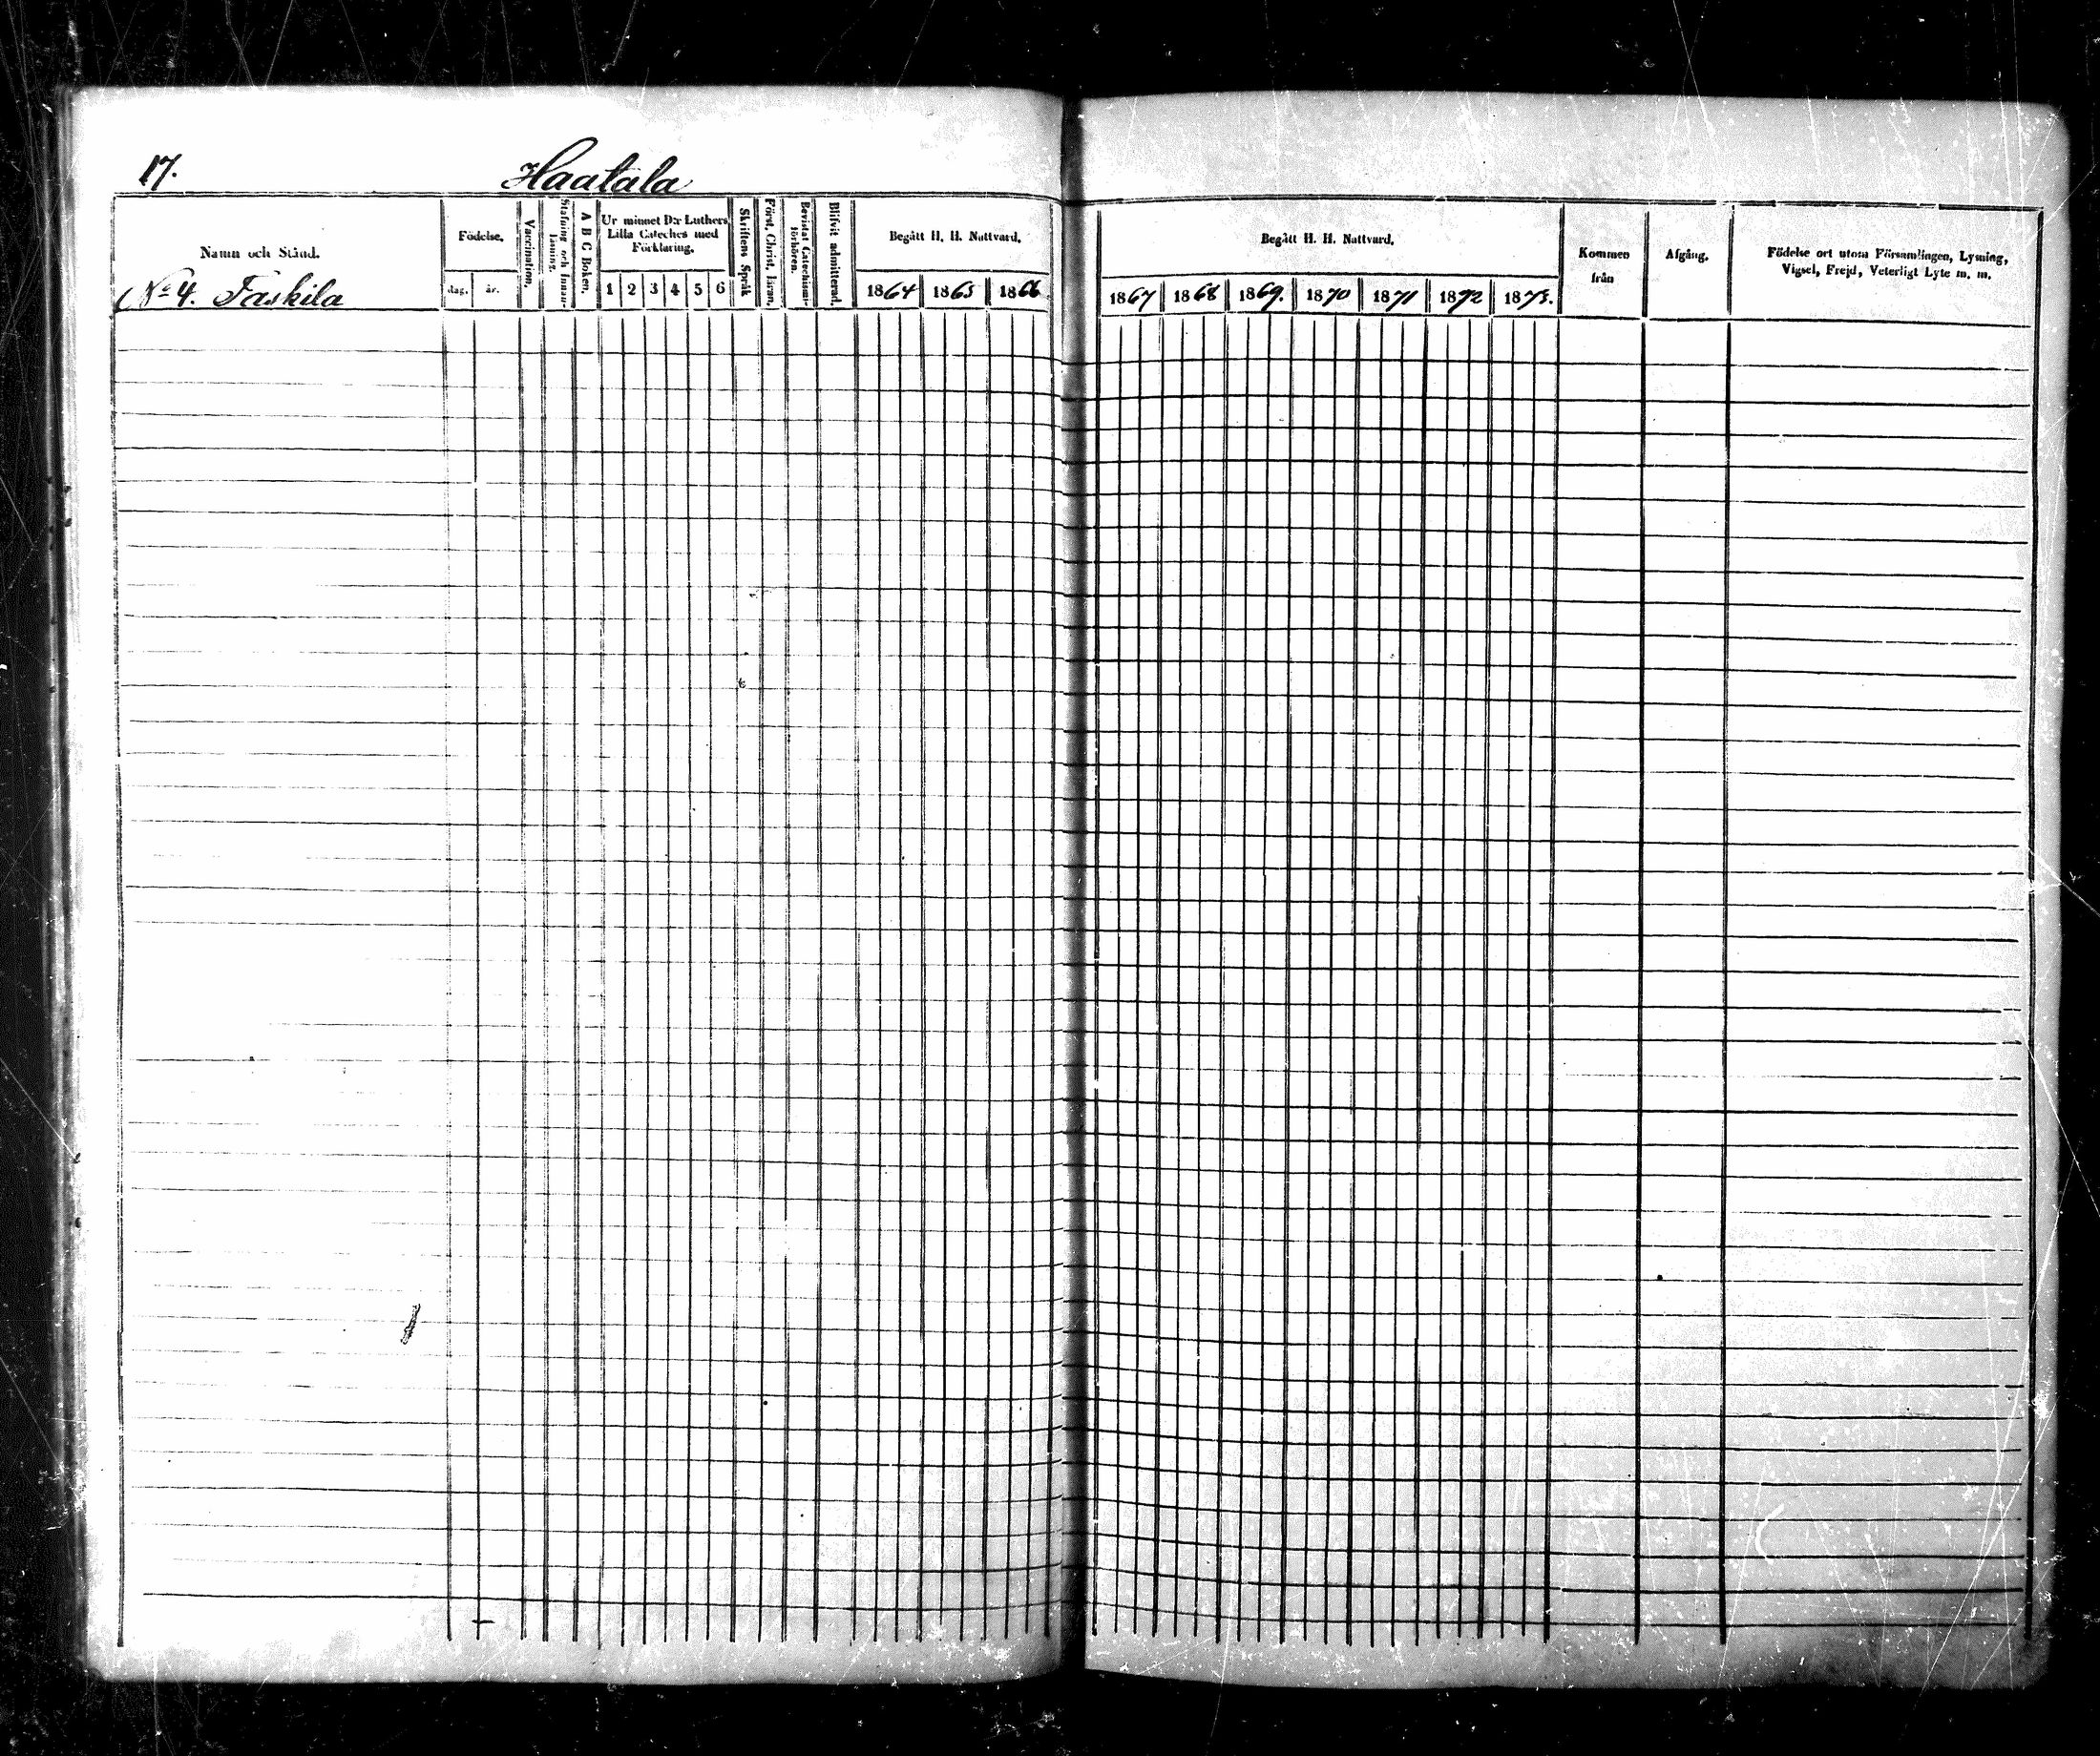 17.
Haatala
Namn och Stånd.
Födelse.
dag.
år.
Vaccination.
Stafning och Innan-
läsning.
A B C Boken.
Ur minnet D:r Luthers
Lilla Cateches med
Förklaring.
1 2 3 4 5 6
Skriftens Språk
Först. Christ. Läran.
Bevistat Catechismi
förhören.
Blifvit admitterad.
Begått H. H. Nattvard.
1864 1865 1866
Begått H. H. Nattvard.
1867 1868 1869. 1870 1871 1872 1873.
Kommen
från
Afgång.
Födelse ort utom Församlingen, Lysning,
Vigsel, Frejd, Veterligt Lyte m. m.
No 4. Taskila